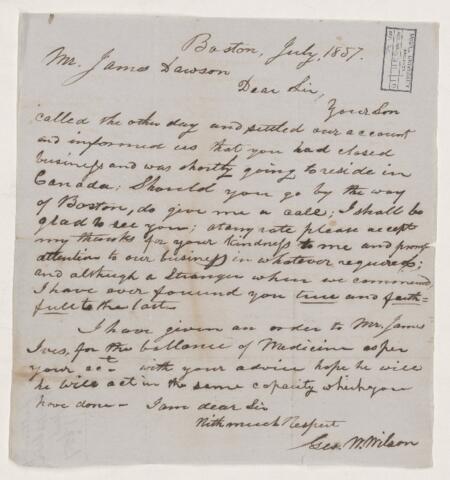 Boston, July, 1857.
Mr. James Dawson
Dear Sir,
Your Son
called the other day and settled our account
and informed us that you had closed
business and was shortly going to reside in
Canada; Should you go by the way
of Boston, do give me a call; I shall be
glad to see you; at any rate please accept
my thanks for your kindness to me and prompt
attention to our business in whatever requires;
and although a stranger when we commenced,
I have ever founnd you true and faith=
full to the last.
I have given an order to Mr. James
Ives, for the ballance of Medicine as per
your act - with your advice hope he will
he will act in the same capacity which you
have done - I am dear Sir
With much Respect
Geo. W. Wilson